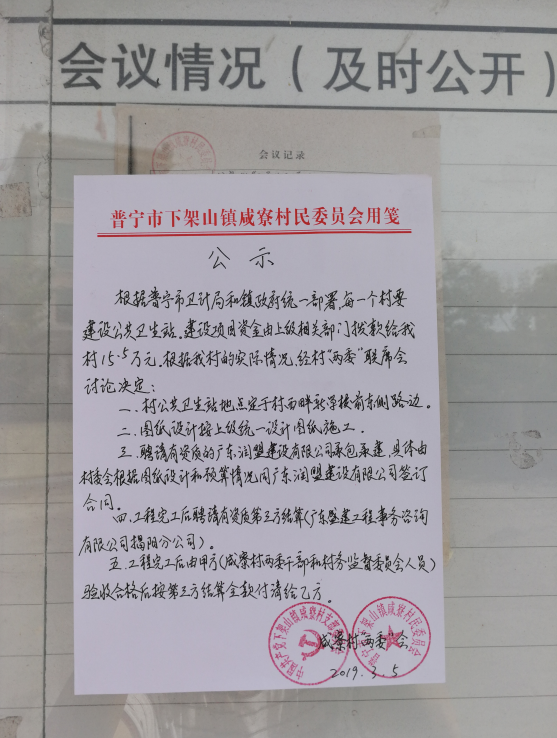 会议情况（及时公开）
会议记录
普宁市下架山镇咸寮村民委员会用笺
公示
根据普宁市卫计局和镇政府统一部署,每一个村要
建设公共卫生站。建设项目资金由上级相关部门拨款给我
村15.5万元。根据我村的实际情况,经村"两委"联席会
讨论决定:
一、村公共卫生站地点定于村西畔新学校前东侧路边。
二、图纸设计按上级统一设计图纸施工。
三、聘请有资质的广东润盟建设有限公司承包承建,具体由
村委会根据图纸设计和预算情况同广东润盟建设有限公司签订
合同。
四、工程完工后聘请有资质第三方结算(广东盟建工程事务咨询
有限公司揭阳分公司)。
五、工程完工后由甲方(咸寮村两委干部和村务监督委员会人员)
验收合格后按第三方结算全款付清给乙方。
咸寮村两委会
2019.3.5
中国共产党下架山镇咸寮村支部委员会
普宁市下架山镇咸寮村民委员会